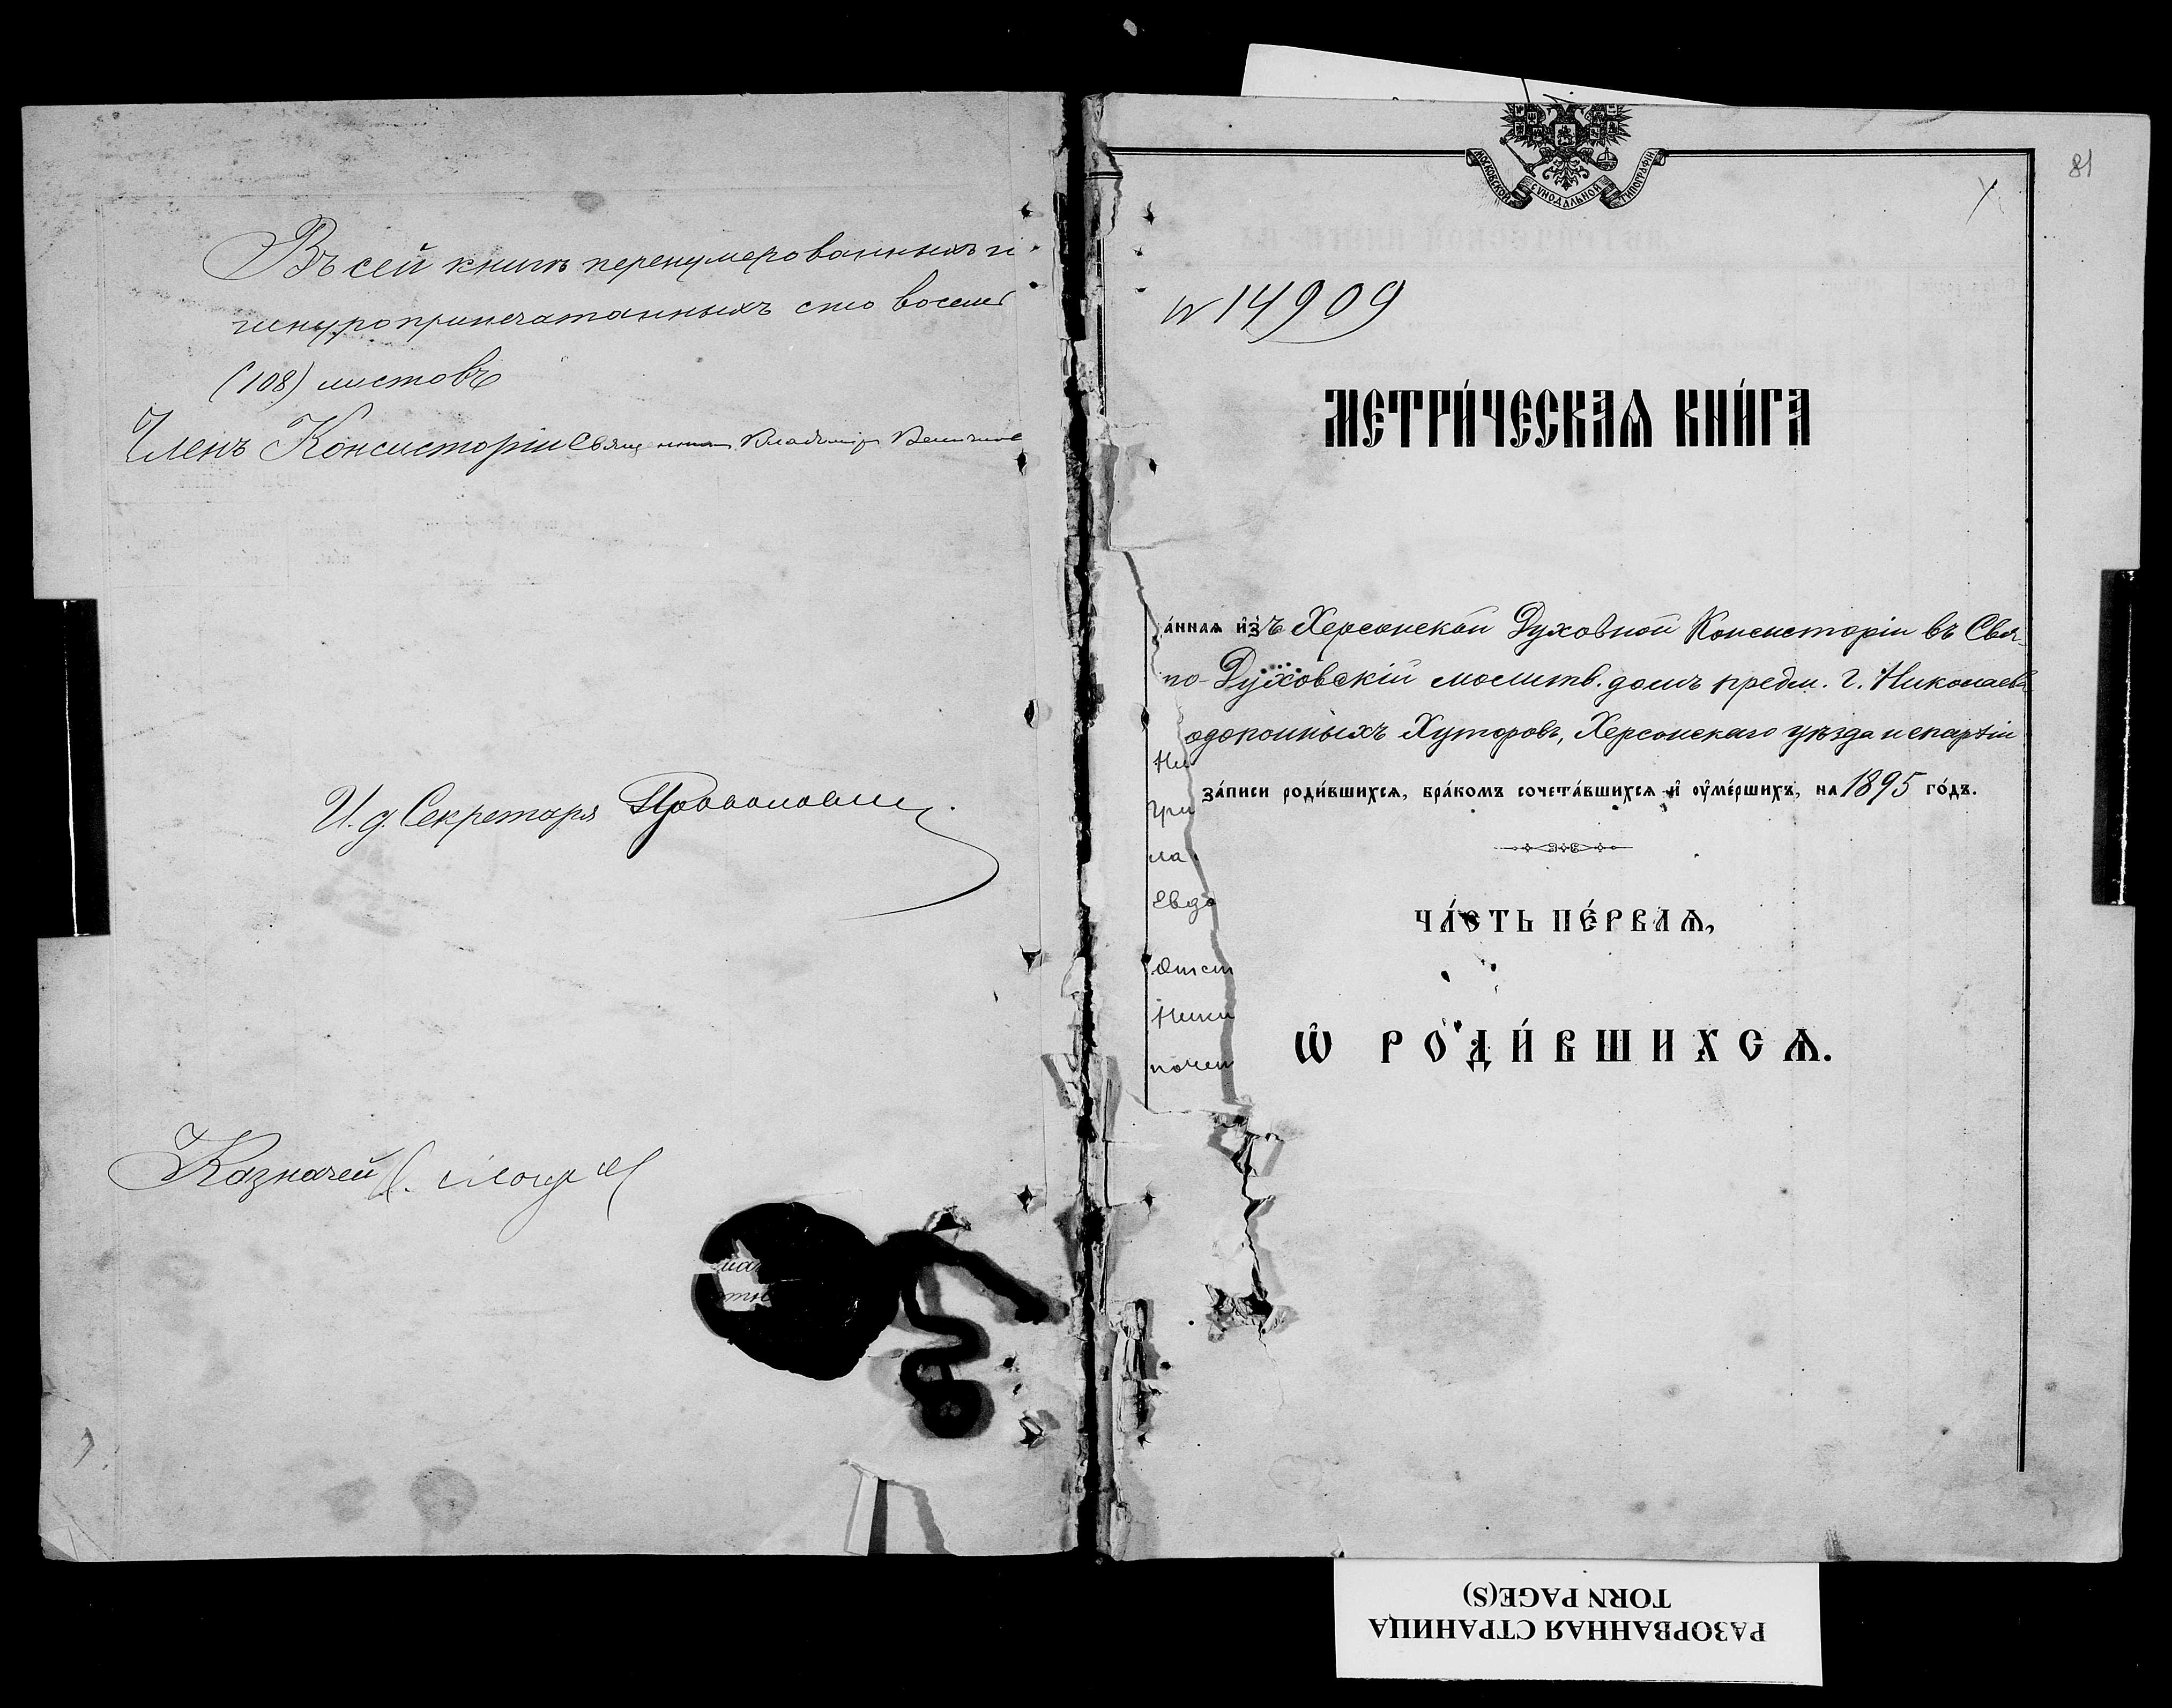 Въ сей книгѣ перенумерованныхъ и
шнуроприпечатанныхъ сто восемь
(108) листовъ
Членъ Консисторіи Священникъ Владиміръ
И. д. Секретаря
Казначей
МОСКОВСКОЙ СУНОДАЛЬНОЙ ТИПОГРАФІИ
81
N 14909
МЕТРИ́ЧЕСКАѦ КНИ́ГА
а́ннаѧ и҆з̾ъ Херсонской Духовной Консисторіи въ Свя-
то-Духовскій молитв. домъ предм. г. Николаева
одопойныхъ Хуторовъ, Херсонскаго уѣзда и епархіи
за́писи роди́вшихсѧ, бра́комъ сочета́вшихсѧ и҆ оу҆ме́ршихъ, на 1895 го́дъ.
Ни
Гри
ла
Евдо
Отст
Ники
почет
ЧА́СТЬ ПЕ́РВАѦ,
Ѡ҆ РОДИ́ВШИХСѦ.
РАЗОРВАННАЯ СТРАНИЦА
TORN PAGE(S)